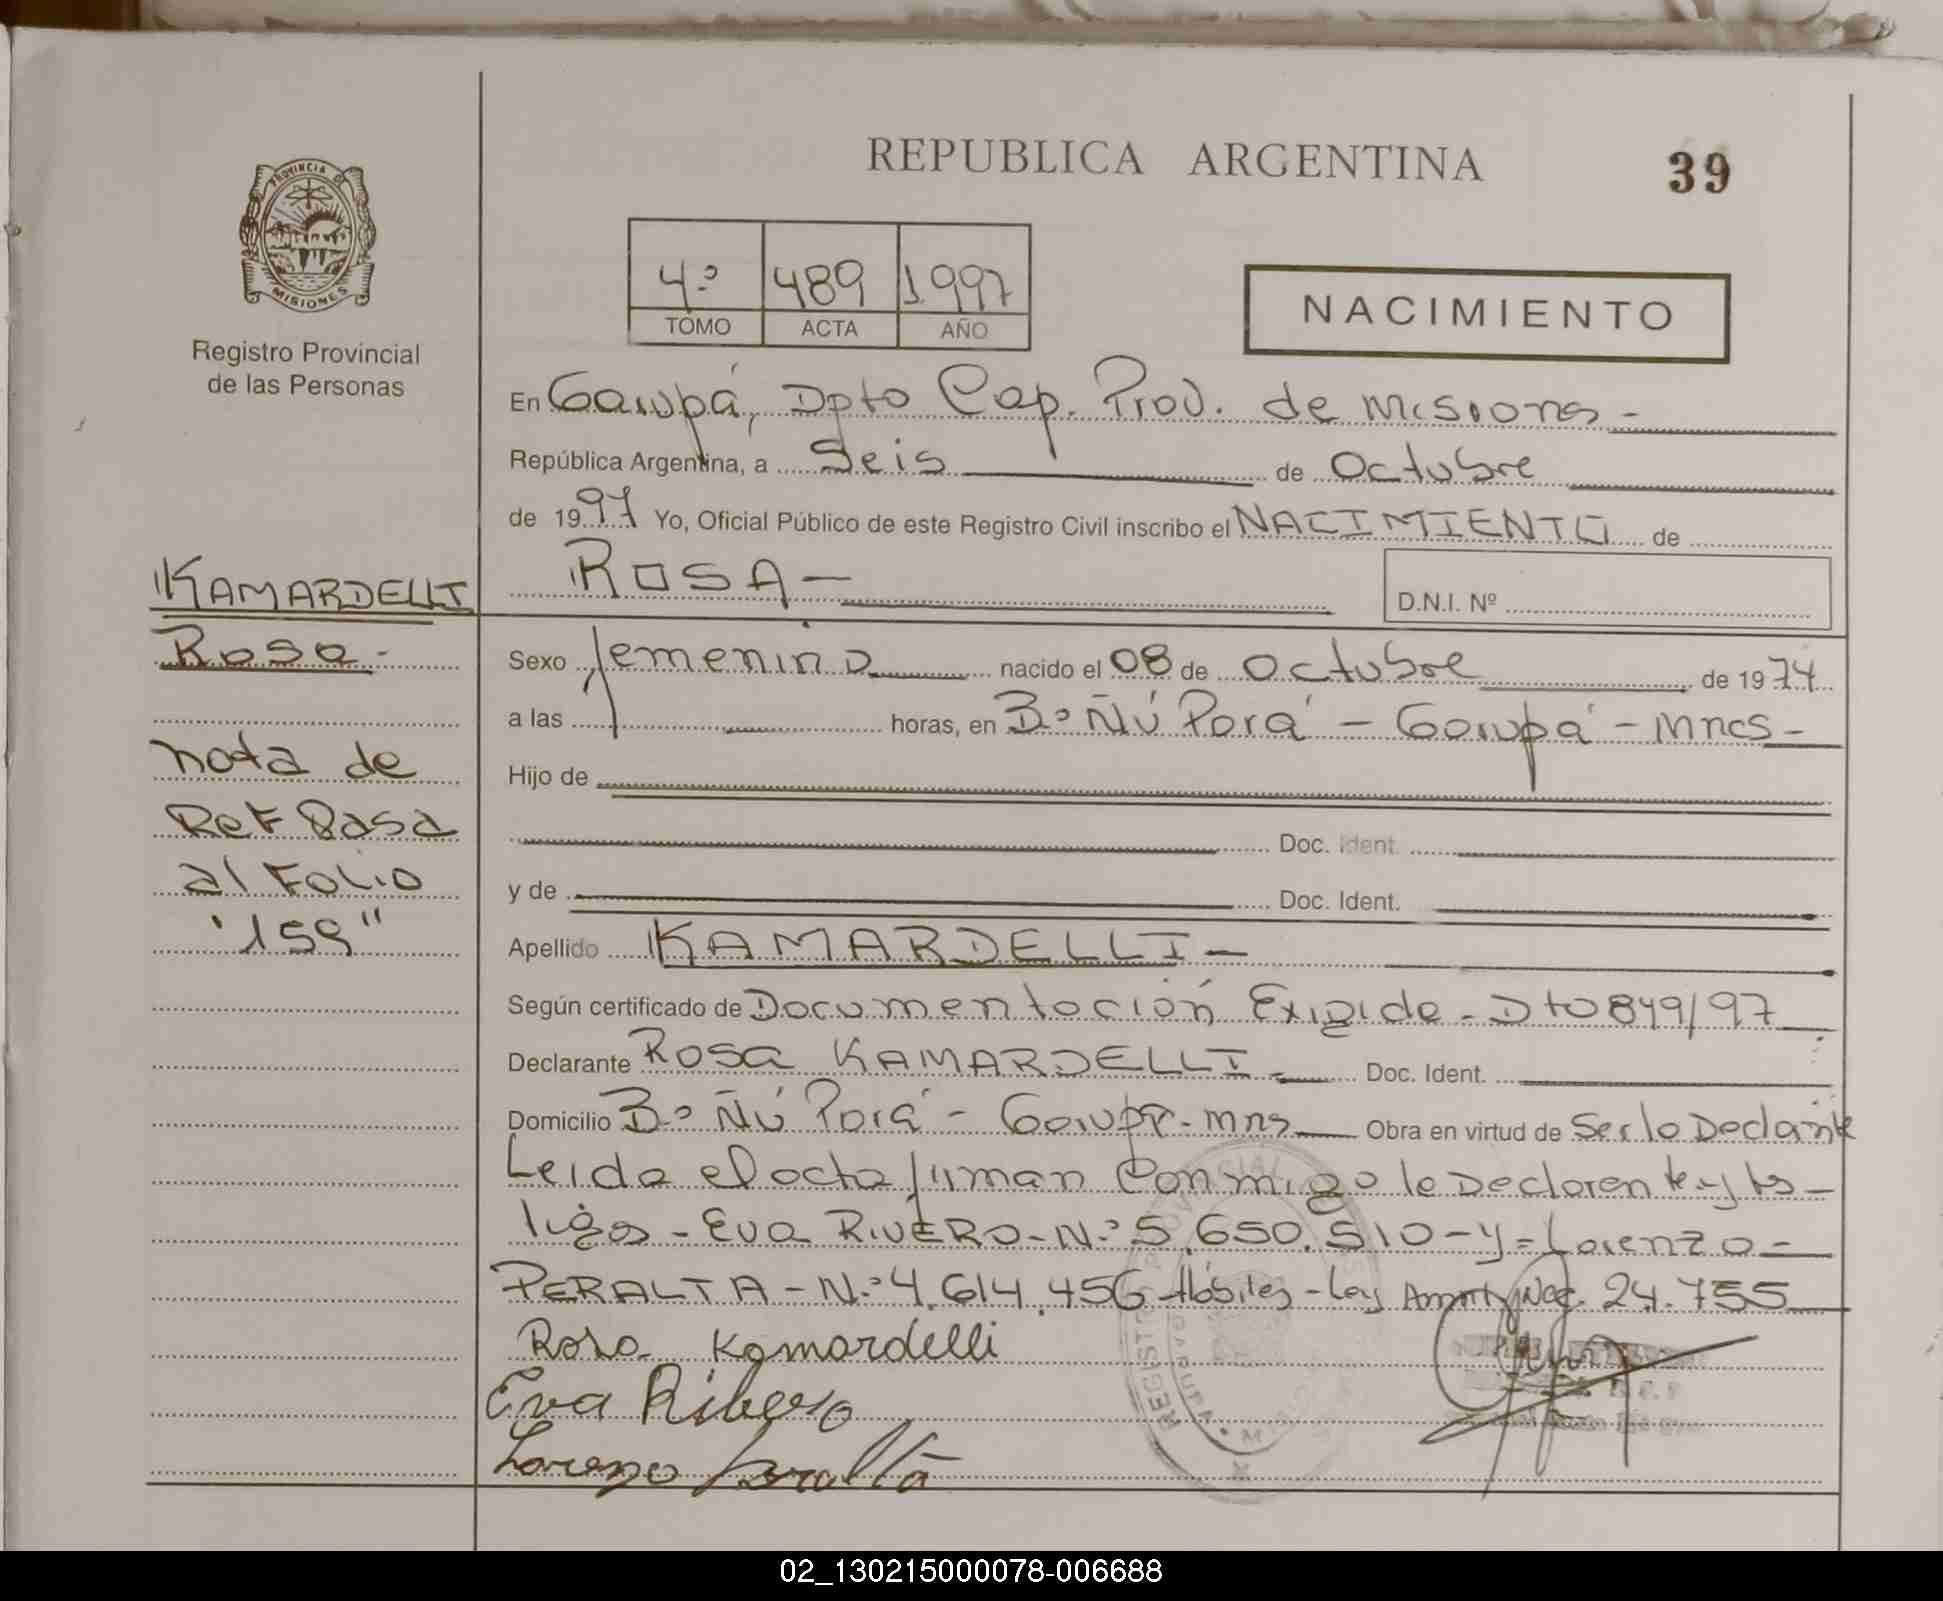 REPUBLICA ARGENTINA
39
PROVINCIA DE
MISIONES
Registro Provincial
de las Personas
4º 489 1997
TOMO ACTA AÑO
NACIMIENTO
En Garupá, Dpto Cap. Prov. de Misiones -
República Argentina, a Seis de Octubre
de 1997 Yo, Oficial Público de este Registro Civil inscribo el NACIMIENTO de
ROSA -
D.N.I. Nº
KAMARDELLI
Rosa -
nota de
Ref Pasa
al Folio
"159"
Sexo femenino nacido el 08 de Octubre de 1974
a las horas, en Bº Ñú Porá - Garupá - Mnes -
Hijo de
Doc. Ident.
y de Doc. Ident.
Apellido KAMARDELLI -
Según certificado de Documentación Exigida - Dto 849/97
Declarante ROSA KAMARDELLI - Doc. Ident.
Domicilio Bº Ñú Porá - Garupá - Mns Obra en virtud de Ser la Declarante
Leida el acta firman conmigo la Declarante y tes-
tigos - Eva RIVERO - Nº 5.650.510 - y = Lorenzo -
PERALTA - Nº 4.614.456 Hábiles - Ley Amnty Nac. 24.755
Rosa Kamardelli
Eva Ribero
Lorenzo Peralta
REGISTRO PROVINCIAL
GARUPA
02_130215000078-006688